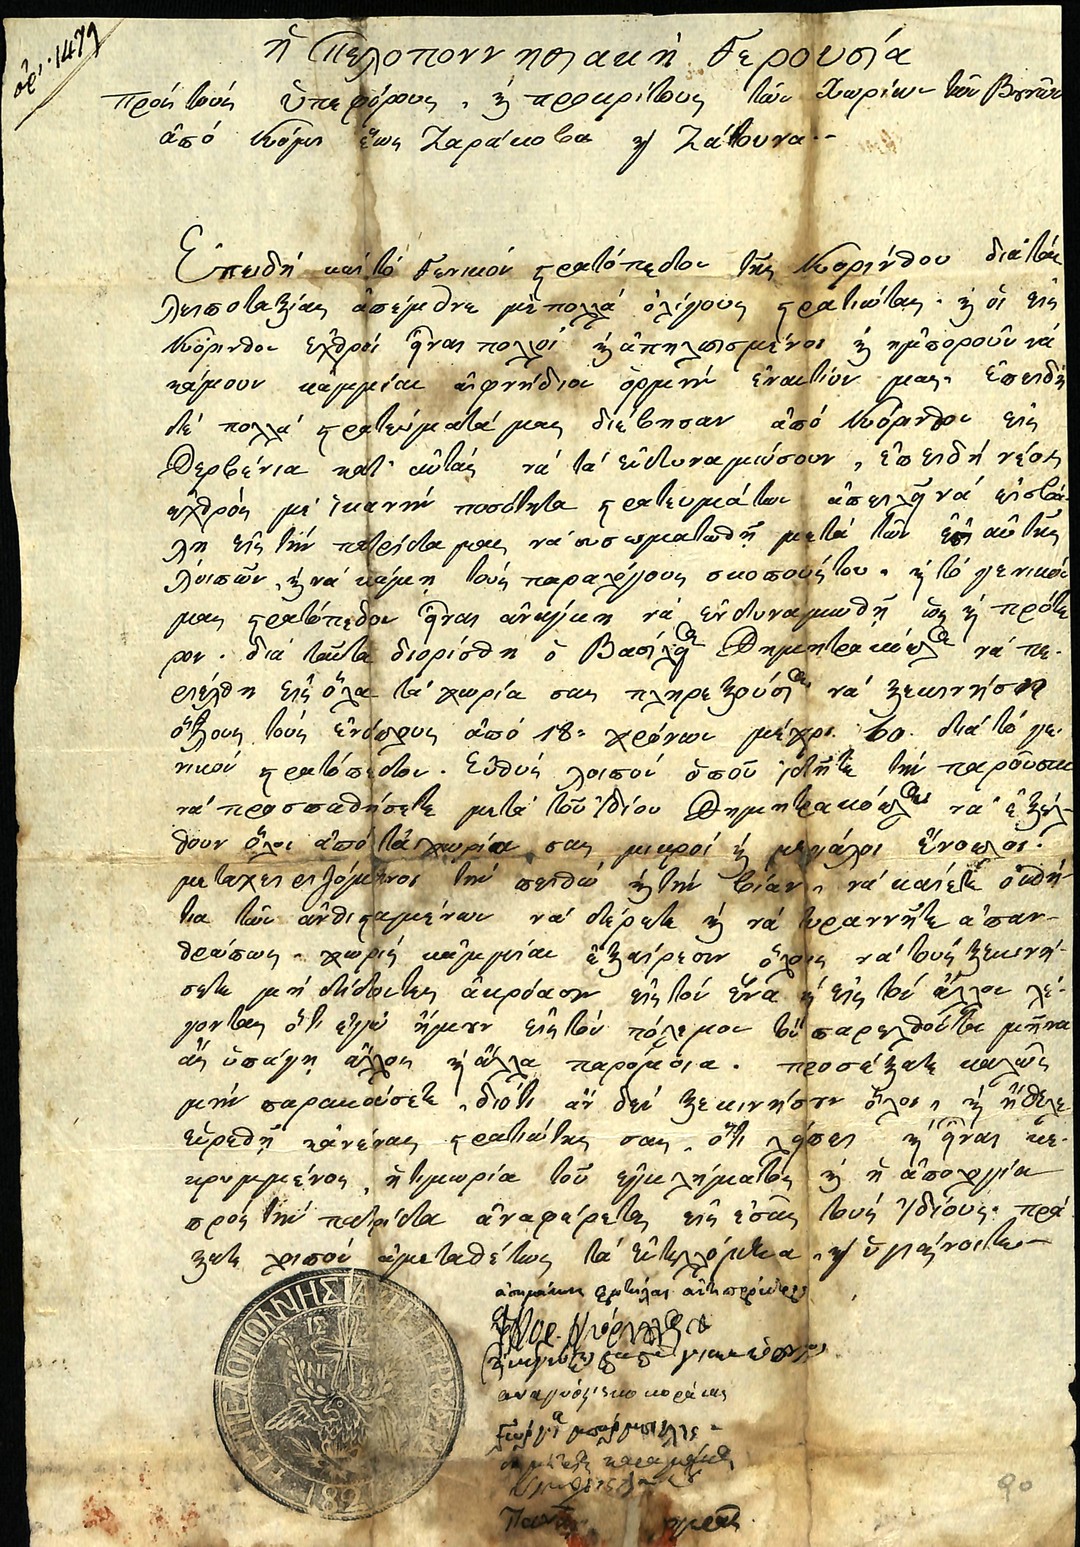 ἀρι. 1479
ἡ Πελοποννησιακὴ Γερουσία
Πρὸς τοὺς ὑπεφόρους, καὶ προκρίτους τῶν χωρίων τῶν
ἀπὸ ἕως Ζαράκοβα καὶ Ζάτουνα.-
Ἐπειδὴ καὶ τὸ Γενικὸν στρατόπεδον τῆς Κορίνθου διὰ τὰς
λειποταξίας ἀπέμεινε μὲ πολλὰ ὀλίγους στρατιώτας. καὶ οἱ εἰς
Κόρινθον ἐχθροὶ ἦναι πολλοὶ καὶ ἀπηλπισμένοι καὶ ἠμποροῦν νὰ
κάμουν καμμίαν αἰφνήδιον ὁρμὴν ἐναντίον μας. ἐπειδὴ
δὲ πολλὰ στρατεύματά μας διέβησαν ἀπὸ Κόρινθον εἰς
Δερβένια κατ' αὐτὰς νὰ τὰ ἐνδυναμώσουν, ἐπειδὴ νέος
ἐχθρὸς μὲ ἱκανὴν ποσότητα στρατευμάτων ἀπειλεῖ νὰ εἰσβά-
λῃ εἰς τὴν πατρίδα μας νὰ συσσωματωθῇ μετὰ τῶν ἐπ' αὐτῆς
λοιπῶν, καὶ νὰ κάμῃ τοὺς παραλόγους σκοπούς του. καὶ τὸ γενικόν
μας στρατόπεδον ἦναι ἀνάγκη νὰ ἐνδυναμωθῇ ὡς καὶ πρότε
ρον. διὰ ταῦτα διορίσθη ὁ Βασίλειος Δημητρακόπουλος νὰ πε-
ριέλθῃ εἰς ὅλα τὰ χωρία σας πληρεξούσιος, νὰ ξεκινήσῃ
ὅλους τοὺς ἐνόπλους ἀπὸ 18: χρόνων μέχρι 60. διὰ τὸ γε-
νικὸν στρατόπεδον. Εὐθὺς λοιπὸν ὁποῦ ἰδῆτε τὴν παροῦσαν
νὰ προσπαθήσετε μετὰ τοῦ ἰδίου Δημητρακόπουλου νὰ ἐξέλ-
θουν ὅλοι ἀπὸ τὰ χωρία σας μικροὶ καὶ μεγάλοι ἔνοπλοι.
μεταχειριζόμενοι τὴν πειθὼ καὶ τὴν βίαν, νὰ καίετε ὀσπή-
τια τῶν ἀνθισταμένων νὰ δέρετε καὶ νὰ τυραννῆτε ἀπαν-
θρώπως. χωρὶς καμμίαν ἐξαίρεσιν ὅλους νὰ τοὺς ξεκινή-
σετε μὴ δίδοντες ἀκρόασιν εἰς τὸν ἕνα καὶ εἰς τὸν ἄλλον λέ-
γοντας ὅτι ἐγὼ ἤμουν εἰς τὸν πόλεμον τὸν παρελθόντα μῆνα
ἂς ὑπάγῃ ἄλλος καὶ ἄλλα παρόμοια. προσέξατε καλῶς
μὴν παρακούσετε, διότι ἂν δὲν ξεκινήσουν ὅλοι, καὶ ἤθελε
εὑρεθῇ κανένας στρατιώτης σας, ὅτι λείπει καὶ ἦναι κε-
κρυμμένος, ἡ τιμωρία τοῦ ἐγκλήματος καὶ ἡ ἀπολογία
πρὸς τὴν πατρίδα ἀναφέρεται εἰς ἐσᾶς τοὺς ἰδίους. πρά-
ξατε λοιπὸν ἀμεταθέτως τὰ ἐντελλόμενα, καὶ ὑγιαίνοιτε-
ἀσημάκης φωτήλας ἀντιπρόεδρος
Η ΠΕΛΟΠΟΝΝΗΣΙΑΚΗ ΓΕΡΟΥΣΙΑ
ΙΣ ΧΣ
ΝΙ ΚΑ
182
90